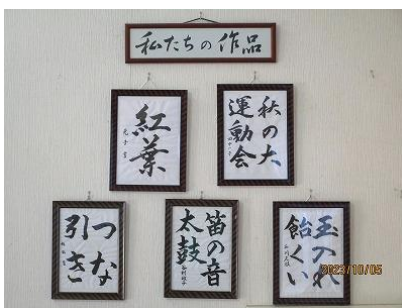 私たちの作品
紅葉
秋の大
運動会
つな
引き
笛の音
太鼓
玉の入れ
飴くい
2023/10/05